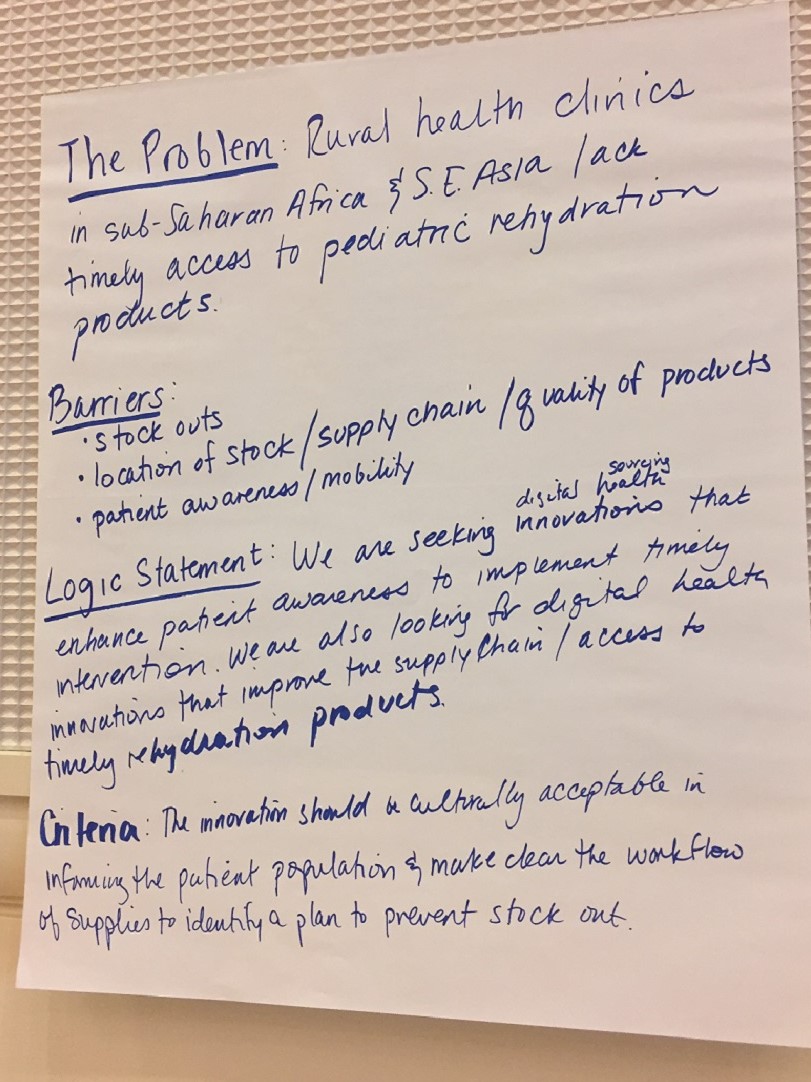 The Problem: Rural health clinics
in sub-Saharan Africa & S.E. Asia lack
timely access to pediatric rehydration
products.
Barriers:
• stock outs
• location of stock/supply chain/quality of products
• patient awareness/mobility
sourcing
digital health
Logic Statement: We are seeking innovations that
enhance patient awareness to implement timely
intervention. We are also looking for digital health
innovations that improve the supply chain/access to
timely rehydration products.
Criteria: The innovation should be culturally acceptable in
informing the patient population & make clear the workflow
of supplies to identify a plan to prevent stock out.